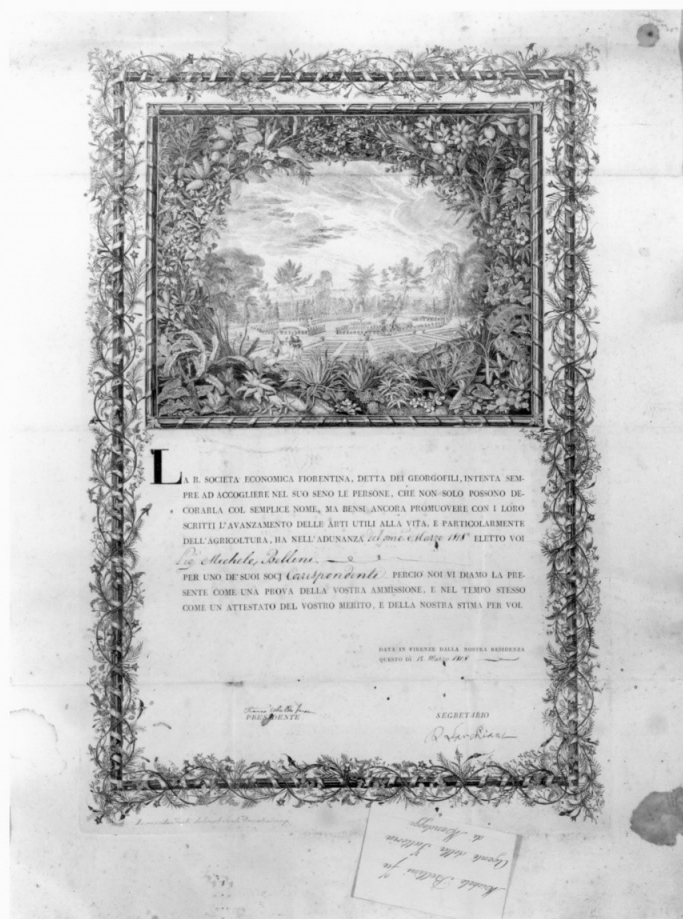 LA R. SOCIETA ECONOMICA FIORENTINA, DETTA DEI GEORGOFILI, INTENTA SEM-
PRE AD ACCOGLIERE NEL SUO SENO LE PERSONE, CHE NON SOLO POSSONO DE-
CORARLA COL SEMPLICE NOME, MA BENSI ANCORA PROMUOVERE CON I LORO
SCRITTI L'AVANZAMENTO DELLE ARTI UTILI ALLA VITA, E PARTICOLARMENTE
DELL'AGRICOLTURA, HA NELL'ADUNANZA Marzo 1818 ELETTO VOI
Sig. Michele Bellini
PER UNO DE'SUOI SOCJ Corrispondenti. PERCIO NOI VI DIAMO LA PRE-
SENTE COME UNA PROVA DELLA VOSTRA AMMISSIONE, E NEL TEMPO STESSO
COME UN ATTESTATO DEL VOSTRO MERITO, E DELLA NOSTRA STIMA PER VOI.
DATA IN FIRENZE DALLA NOSTRA RESIDENZA
QUESTO DI 12 Marzo 1818
PRESIDENTE
SEGRETARIO
Michele Bellini fu
Agente della Fattoria
di